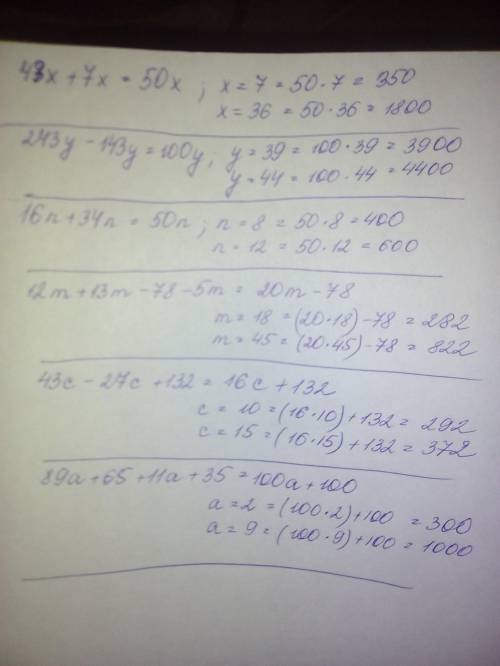 43x + 7x = 50x ; x = 7 = 50·7 = 350
x = 36 = 50·36 = 1800
243y - 143y = 100y ; y = 39 = 100·39 = 3900
y = 44 = 100·44 = 4400
16n + 34n = 50n ; n = 8 = 50·8 = 400
n = 12 = 50·12 = 600
12m + 13m - 78 - 5m = 20m - 78
m = 18 = (20·18) - 78 = 282
m = 45 = (20·45) - 78 = 822
43c - 27c + 132 = 16c + 132
c = 10 = (16·10) + 132 = 292
c = 15 = (16·15) + 132 = 372
89a + 65 + 11a + 35 = 100a + 100
a = 2 = (100·2) + 100 = 300
a = 9 = (100·9) + 100 = 1000